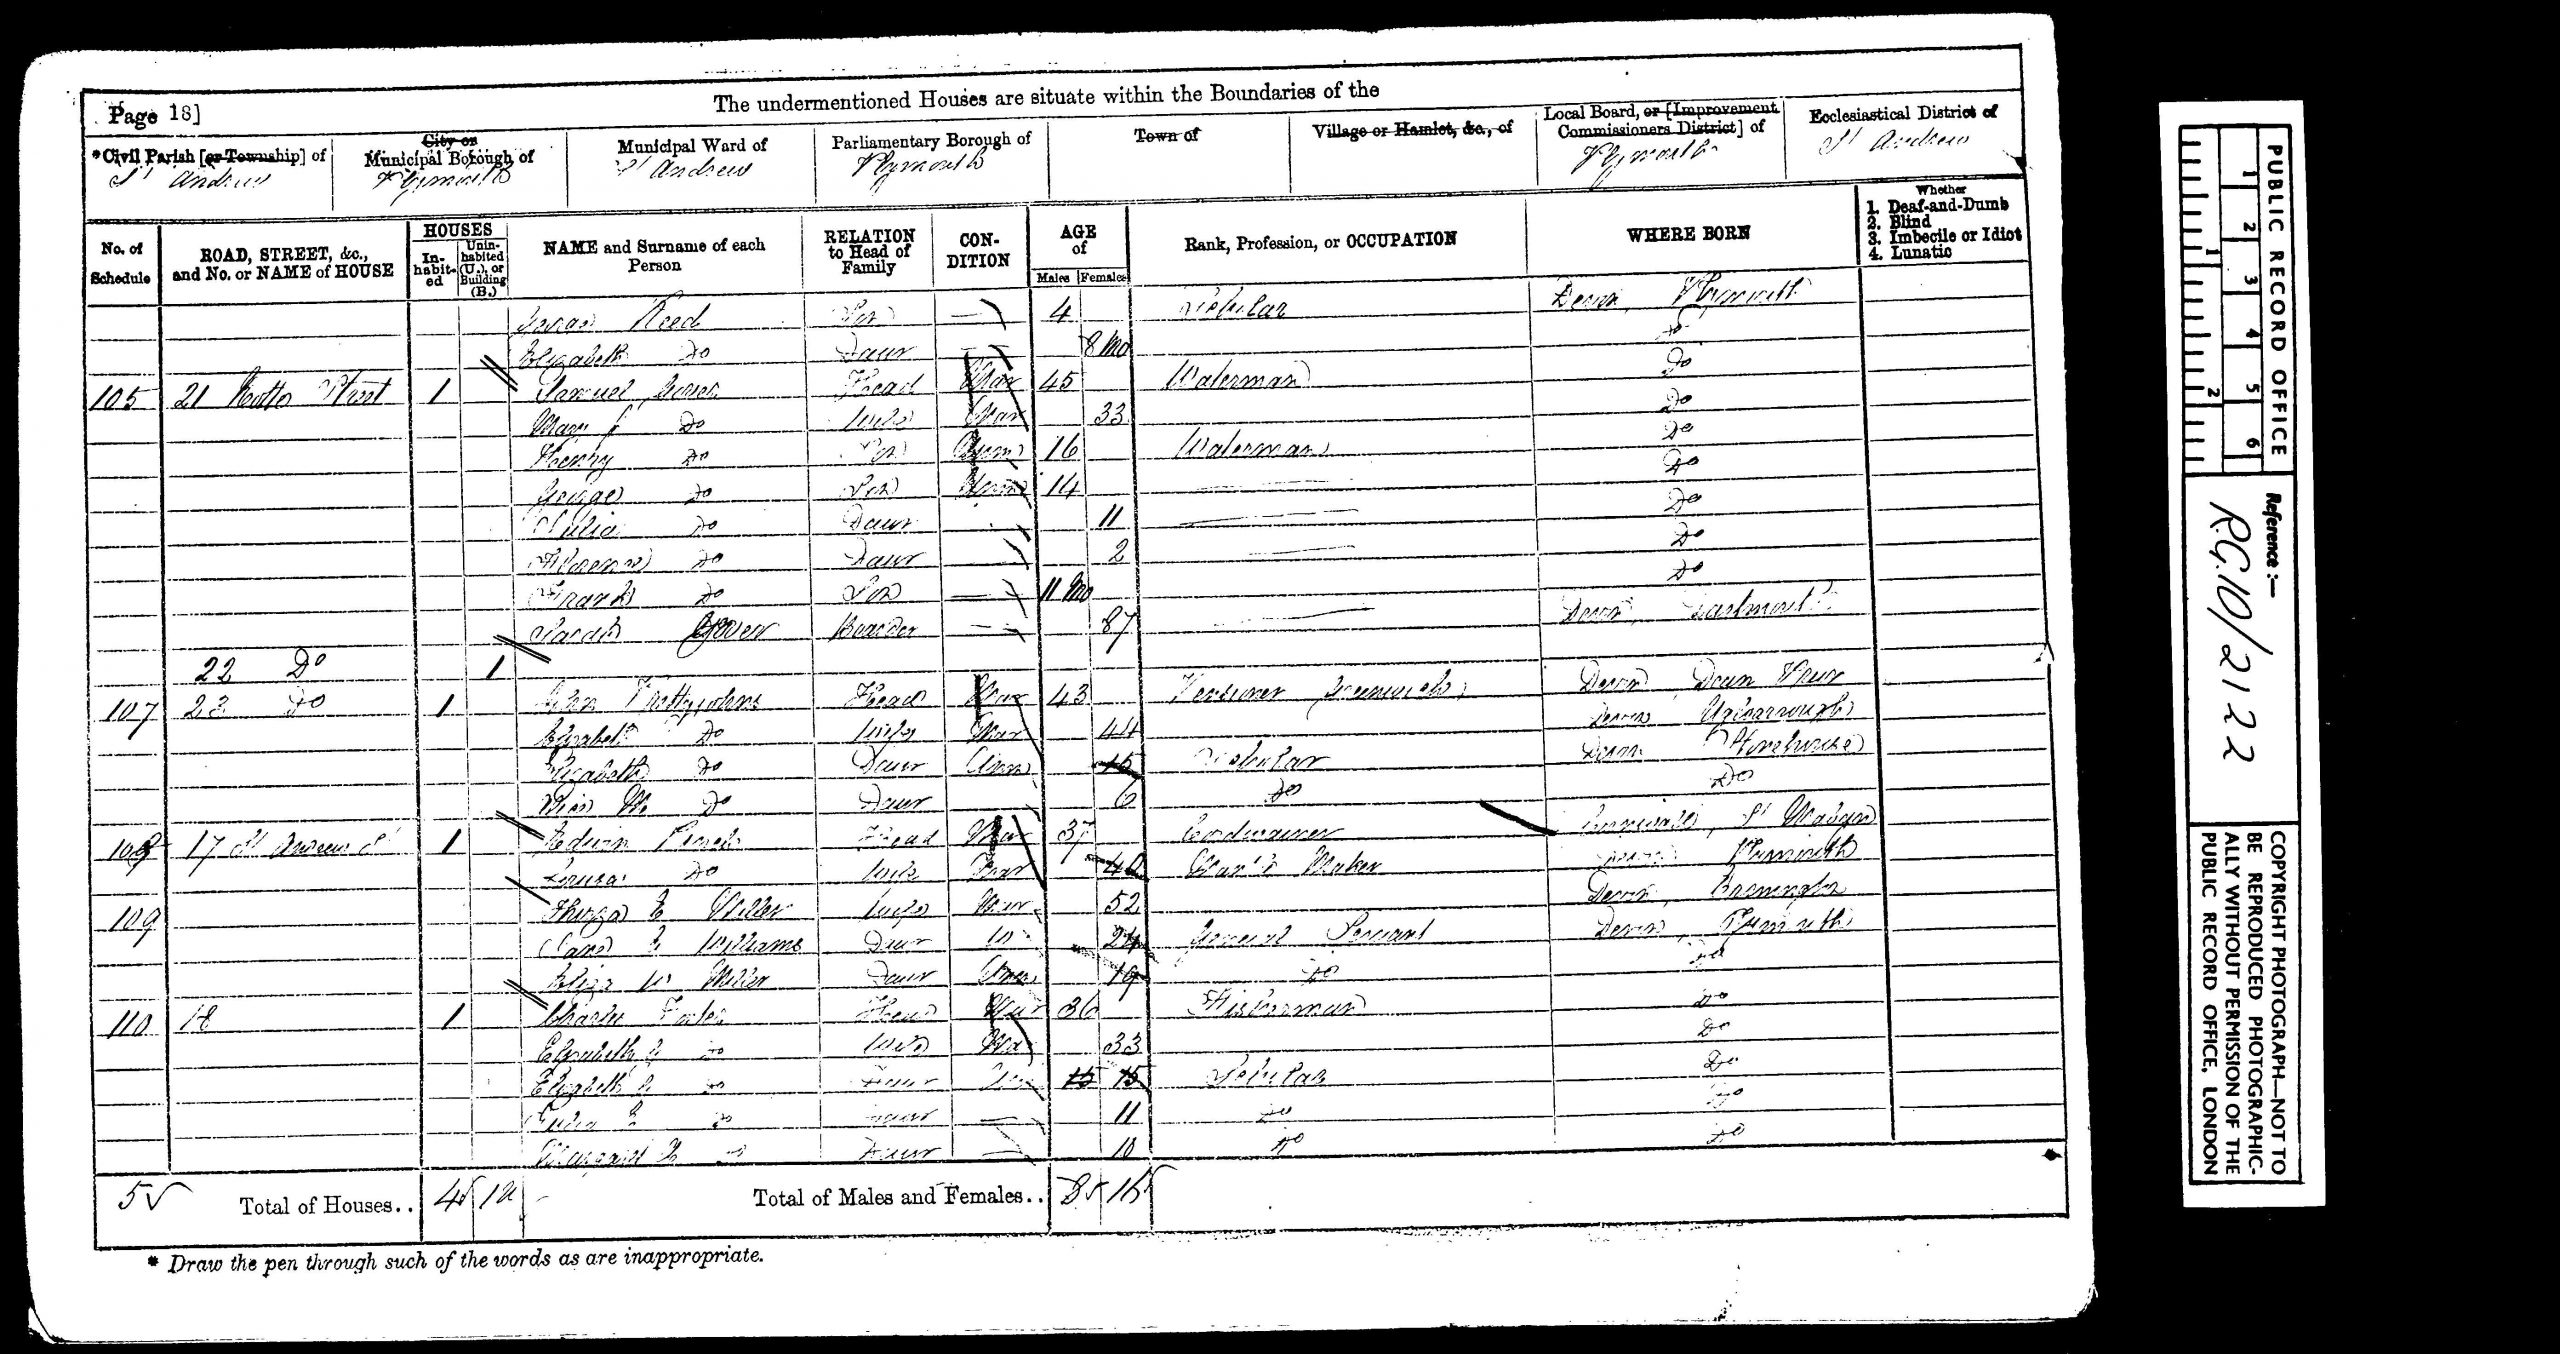 Page 18]
The undermentioned Houses are situate within the Boundaries of the
*Civil Parish [or Township] of
City or Municipal Borough of
Municipal Ward of
Parliamentary Borough of
Town of
Village or Hamlet, &c., of
Local Board, or [Improvement Commissioners District] of
Ecclesiastical District of
St Andrew
Plymouth
St Andrew
Plymouth
Plymouth
St Andrew
No. of Schedule
ROAD, STREET, &c., and No. or NAME of HOUSE
HOUSES
In-habit-ed
Unin-habited (U.), or Building (B.)
NAME and Surname of each Person
RELATION to Head of Family
CON-DITION
AGE of
Males
Females
Rank, Profession, or OCCUPATION
WHERE BORN
Whether
1. Deaf-and-Dumb
2. Blind
3. Imbecile or Idiot
4. Lunatic
Reed Son 4 Scholar Devon, Plymouth
Elizabeth Do Daur 8 Mo Do
105 21 Street 1 Samuel Head Mar 45 Waterman Do
Mary Do Wife Mar 33 Do
Henry Do Son Unm 16 Waterman Do
George Do Son Unm 14 Do
Julia Do Daur 11 Do
Do Daur 2 Do
Frank Do Son 11 Mo Do
Sarah Boarder 87 Devon, Dartmouth
22 Do 1
107 23 Do 1 John Head Mar 43 Pensioner Greenwich Devon
Elizabeth Do Wife Mar 44 Devon Ugborough
Elizabeth Do Daur Unm 15 Scholar Devon Stonehouse
M Do Daur 6 Do Do
108 17 St Andrew St 1 Edwin Head Mar 37 Cordwainer Cornwall, St Mabyn
Louisa Do Wife Mar 40 Maker Devon Plymouth
109 Thirza E Miller Wife Mar 52 Devon
E Williams Daur W 24 General Servant Devon, Plymouth
Eliza W Miller Daur Unm 19 Do Do
110 18 1 Charles Head Mar 36 Fisherman Do
Elizabeth Do Wife Mar 33 Do
Elizabeth Do Daur Unm 15 15 Scholar Do
Julia E Do Daur 11 Do Do
Margaret Do Daur 10 Do Do
5 Total of Houses.. 4 1u Total of Males and Females.. 8 16
* Draw the pen through such of the words as are inappropriate.
1 2 3 4 5 6
1 2
PUBLIC RECORD OFFICE
Reference :—
R.G. 10/2122
COPYRIGHT PHOTOGRAPH—NOT TO
BE REPRODUCED PHOTOGRAPHIC-
ALLY WITHOUT PERMISSION OF THE
PUBLIC RECORD OFFICE, LONDON